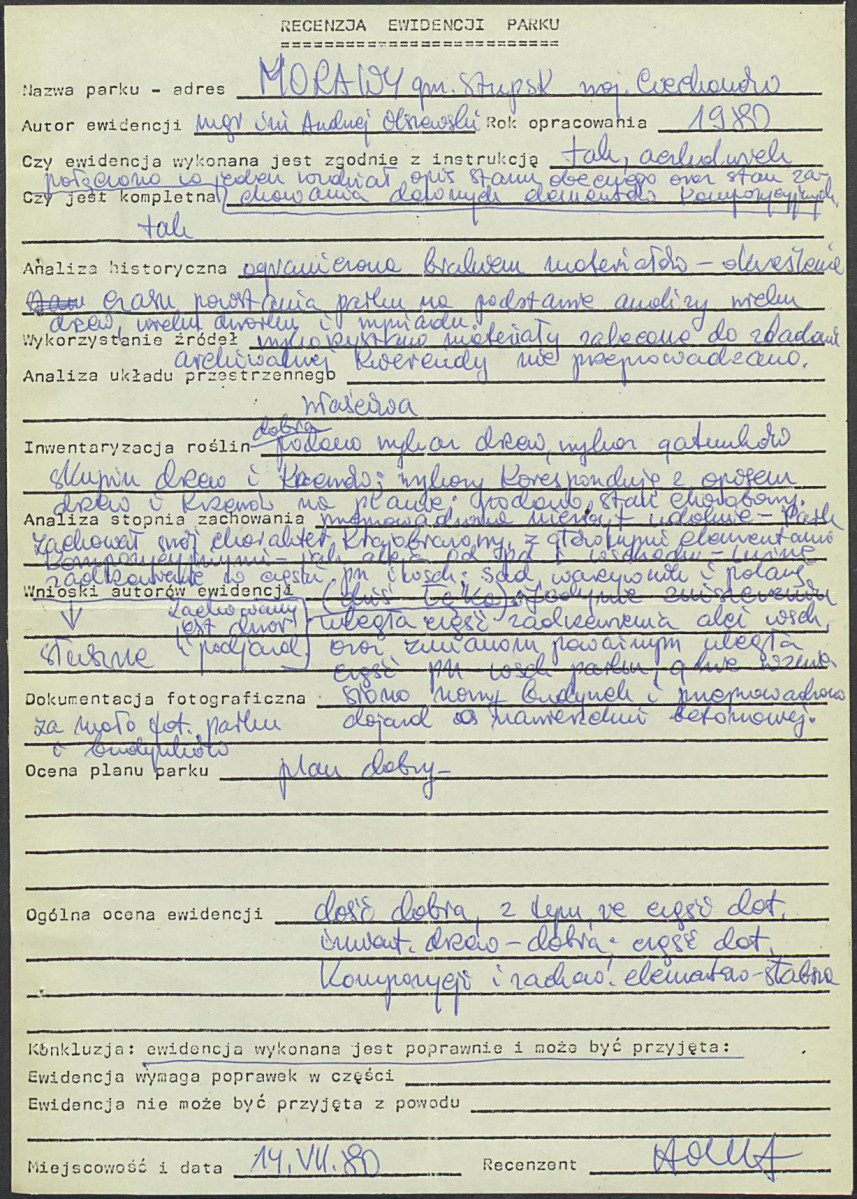 RECENZJA EWIDENCJI PARKU
===========================
Nazwa parku - adres MORAWY gm. Stupsk woj. Ciechanów
Autor ewidencji mgr inż Andrzej Olszewski Rok opracowania 1980
Czy ewidencja wykonana jest zgodnie z instrukcją tak, aczkolwiek
połączono w jeden rozdział opis stanu obecnego oraz stan za-
Czy jest kompletna chowania dawnych elementów kompozycyjnych.
tak
Analiza historyczna ograniczona brakiem materiałów - określenie
czasu powstania parku na podstawie analizy wieku
drzew, wieku dworku i wywiadu.
Wykorzystanie źródeł wykorzystano materiały zalecone do zbadania
archiwalnej kwerendy nie przeprowadzano.
Analiza układu przestrzennego
właściwa
dobra
Inwentaryzacja roślin podano wykaz drzew, wykaz gatunków
skupin drzew i krzewów; wykazy korespondują z opisem
drzew i krzewów na planie. podano stan chorobowy.
Analiza stopnia zachowania przeprowadzona - Park
zachował swój charakter krajobrazowy, z głównymi elementami
kompozycyjnymi - jak aleja od pd i wschodu -
zadrzewienie w części pn i wsch. sad, warzywnik i polany
Wnioski autorów ewidencji (dziś łąka).
zachowany
jest dwór uległa część zadrzewienia alei wsch,
słuszne i podjazd oraz zmianom poważnym uległa
część pn-wsch parku, gdzie wznie-
Dokumentacja fotograficzna siono nowy budynek i przeprowadzono
za mało fot. parku dojazd o nawierzchni betonowej.
i budynków
Ocena planu parku plan dobry -
Ogólna ocena ewidencji dość dobra, z tym, że część dot.
inwent. drzew - dobra; część dot.
kompozycji i zachow. elementów - słabsza
Konkluzja: ewidencja wykonana jest poprawnie i może być przyjęta:
Ewidencja wymaga poprawek w części
Ewidencja nie może być przyjęta z powodu
Miejscowość i data 14.VII.80 Recenzent